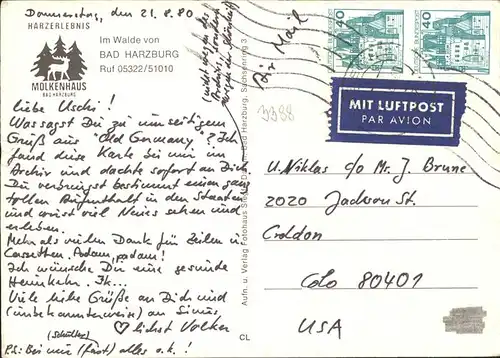 Donnerstag, den 21.8.80
HARZERLEBNIS
Im Walde von
BAD HARZBURG
Ruf 05322/51010
MOLKENHAUS
BAD HARZBURG
Liebe Uschi!
Was sagst Du zu umseitigem
Gruß aus "Old Germany"? Ich
fand diese Karte bei mir im
Archiv und dachte sofort an Dich.
Du verbringst bestimmt einen ganz
tollen Aufenthalt in den Staaten
und wirst viel Neues sehen und
erleben.
Mehr als vielen Dank für Zeilen u.
Cassetten.
Ich wünsche Dir eine gesunde
Heimkehr.
Viele liebe Grüße an Dich und
(unbekannterweise) an
herzlichst Volker
(Schüller)
PS: Bei mir (fast) alles o.k.!
(nicht wegen der
sondern
wegen der
Air Mail
3388
Aufn. u. Verlag Fotohaus Bad Harzburg, Sachsenring 3
CL
40
40
MIT LUFTPOST
PAR AVION
U. Niklas c/o Mr. J. Brune
2020 Jackson St.
Golden
Colo 80401
USA